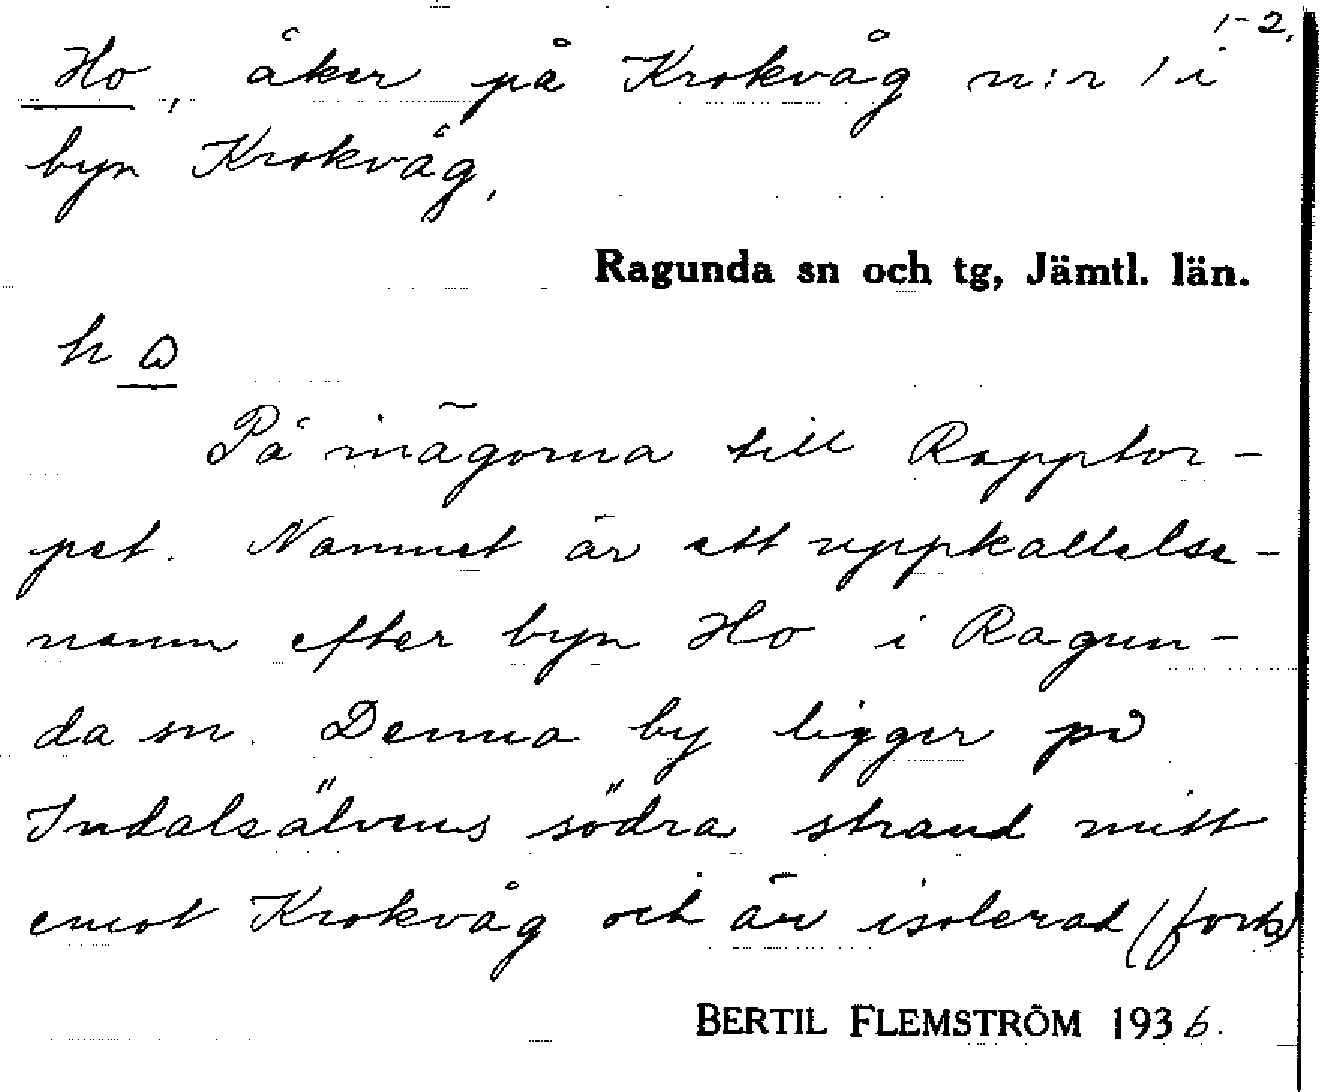 1-2.
Ho, åker på Krokvåg n:r 1 i
byn Krokvåg.
Ragunda sn och tg, Jämtl. län.
På inägorna till Rapptor-
pet. Namnet är ett uppkallelse-
namn efter byn Ho i Ragun-
da sn. Denna by ligger på
Indalsälvens södra strand mitt
emot Krokvåg och är isolerad (forts)
BERTIL FLEMSTRÖM 1936.